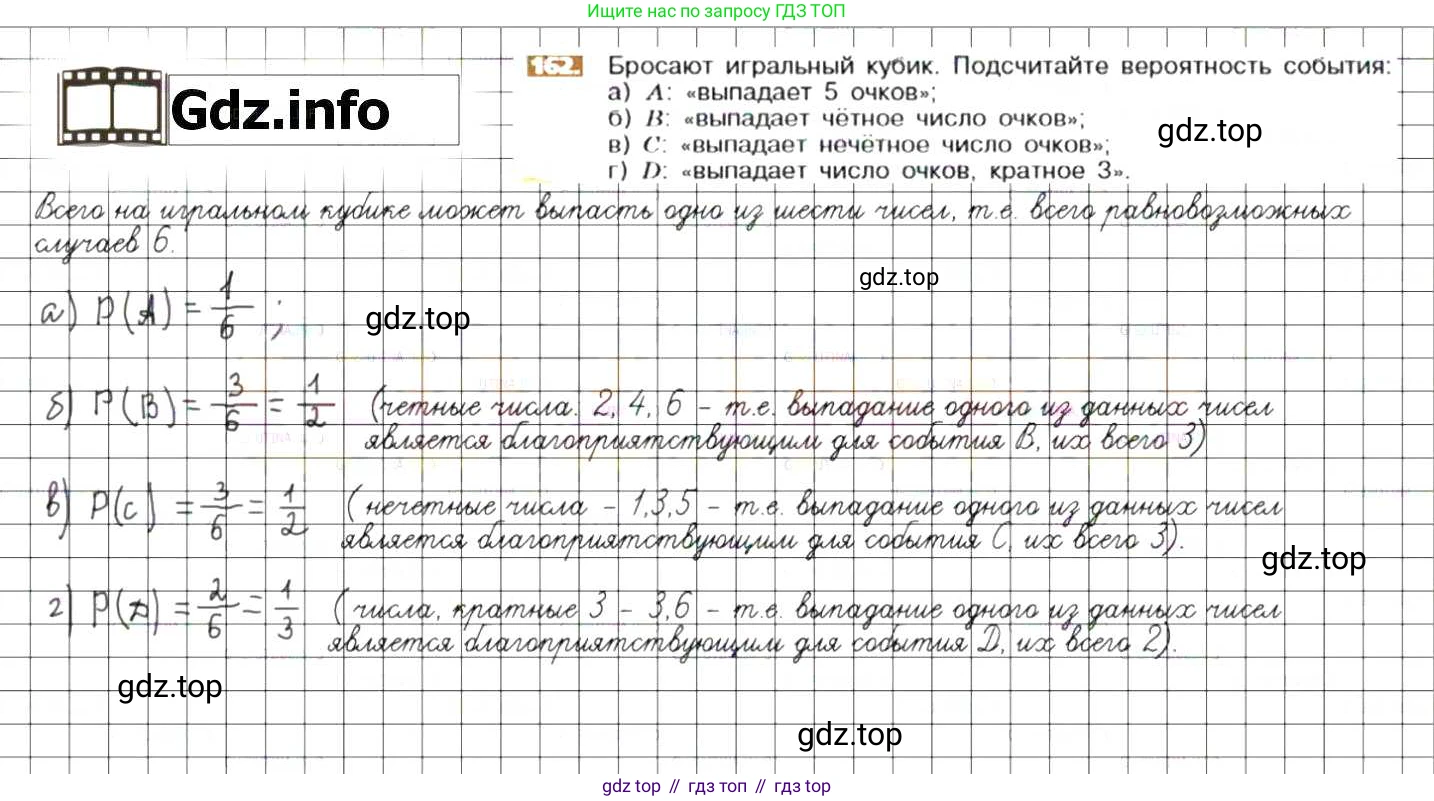 Ищите нас по запросу ГДЗ ТОП
Gdz.info
162. Бросают игральный кубик. Подсчитайте вероятность события:
а) A: «выпадает 5 очков»;
б) B: «выпадает чётное число очков»;
gdz.top
в) C: «выпадает нечётное число очков»;
г) D: «выпадает число очков, кратное 3».
Всего на игральном кубике может выпасть одно из шести чисел, т.е. всего равновозможных
случаев 6.
gdz.top
а) P(A) = 1/6 ;
gdz.top
б) P(B) = 3/6 = 1/2 (четные числа. 2, 4, 6 – т.е. выпадание одного из данных чисел
является благоприятствующим для события B, их всего 3)
в) P(C) = 3/6 = 1/2 ( нечетные числа – 1,3,5 – т.е. выпадание одного из данных чисел
является благоприятствующим для события C, их всего 3).
gdz.top
г) P(D) = 2/6 = 1/3 ( числа, кратные 3 – 3,6 – т.е. выпадание одного из данных чисел
является благоприятствующим для события D, их всего 2).
gdz.top
gdz.top
gdz top // гдз топ // гдз top